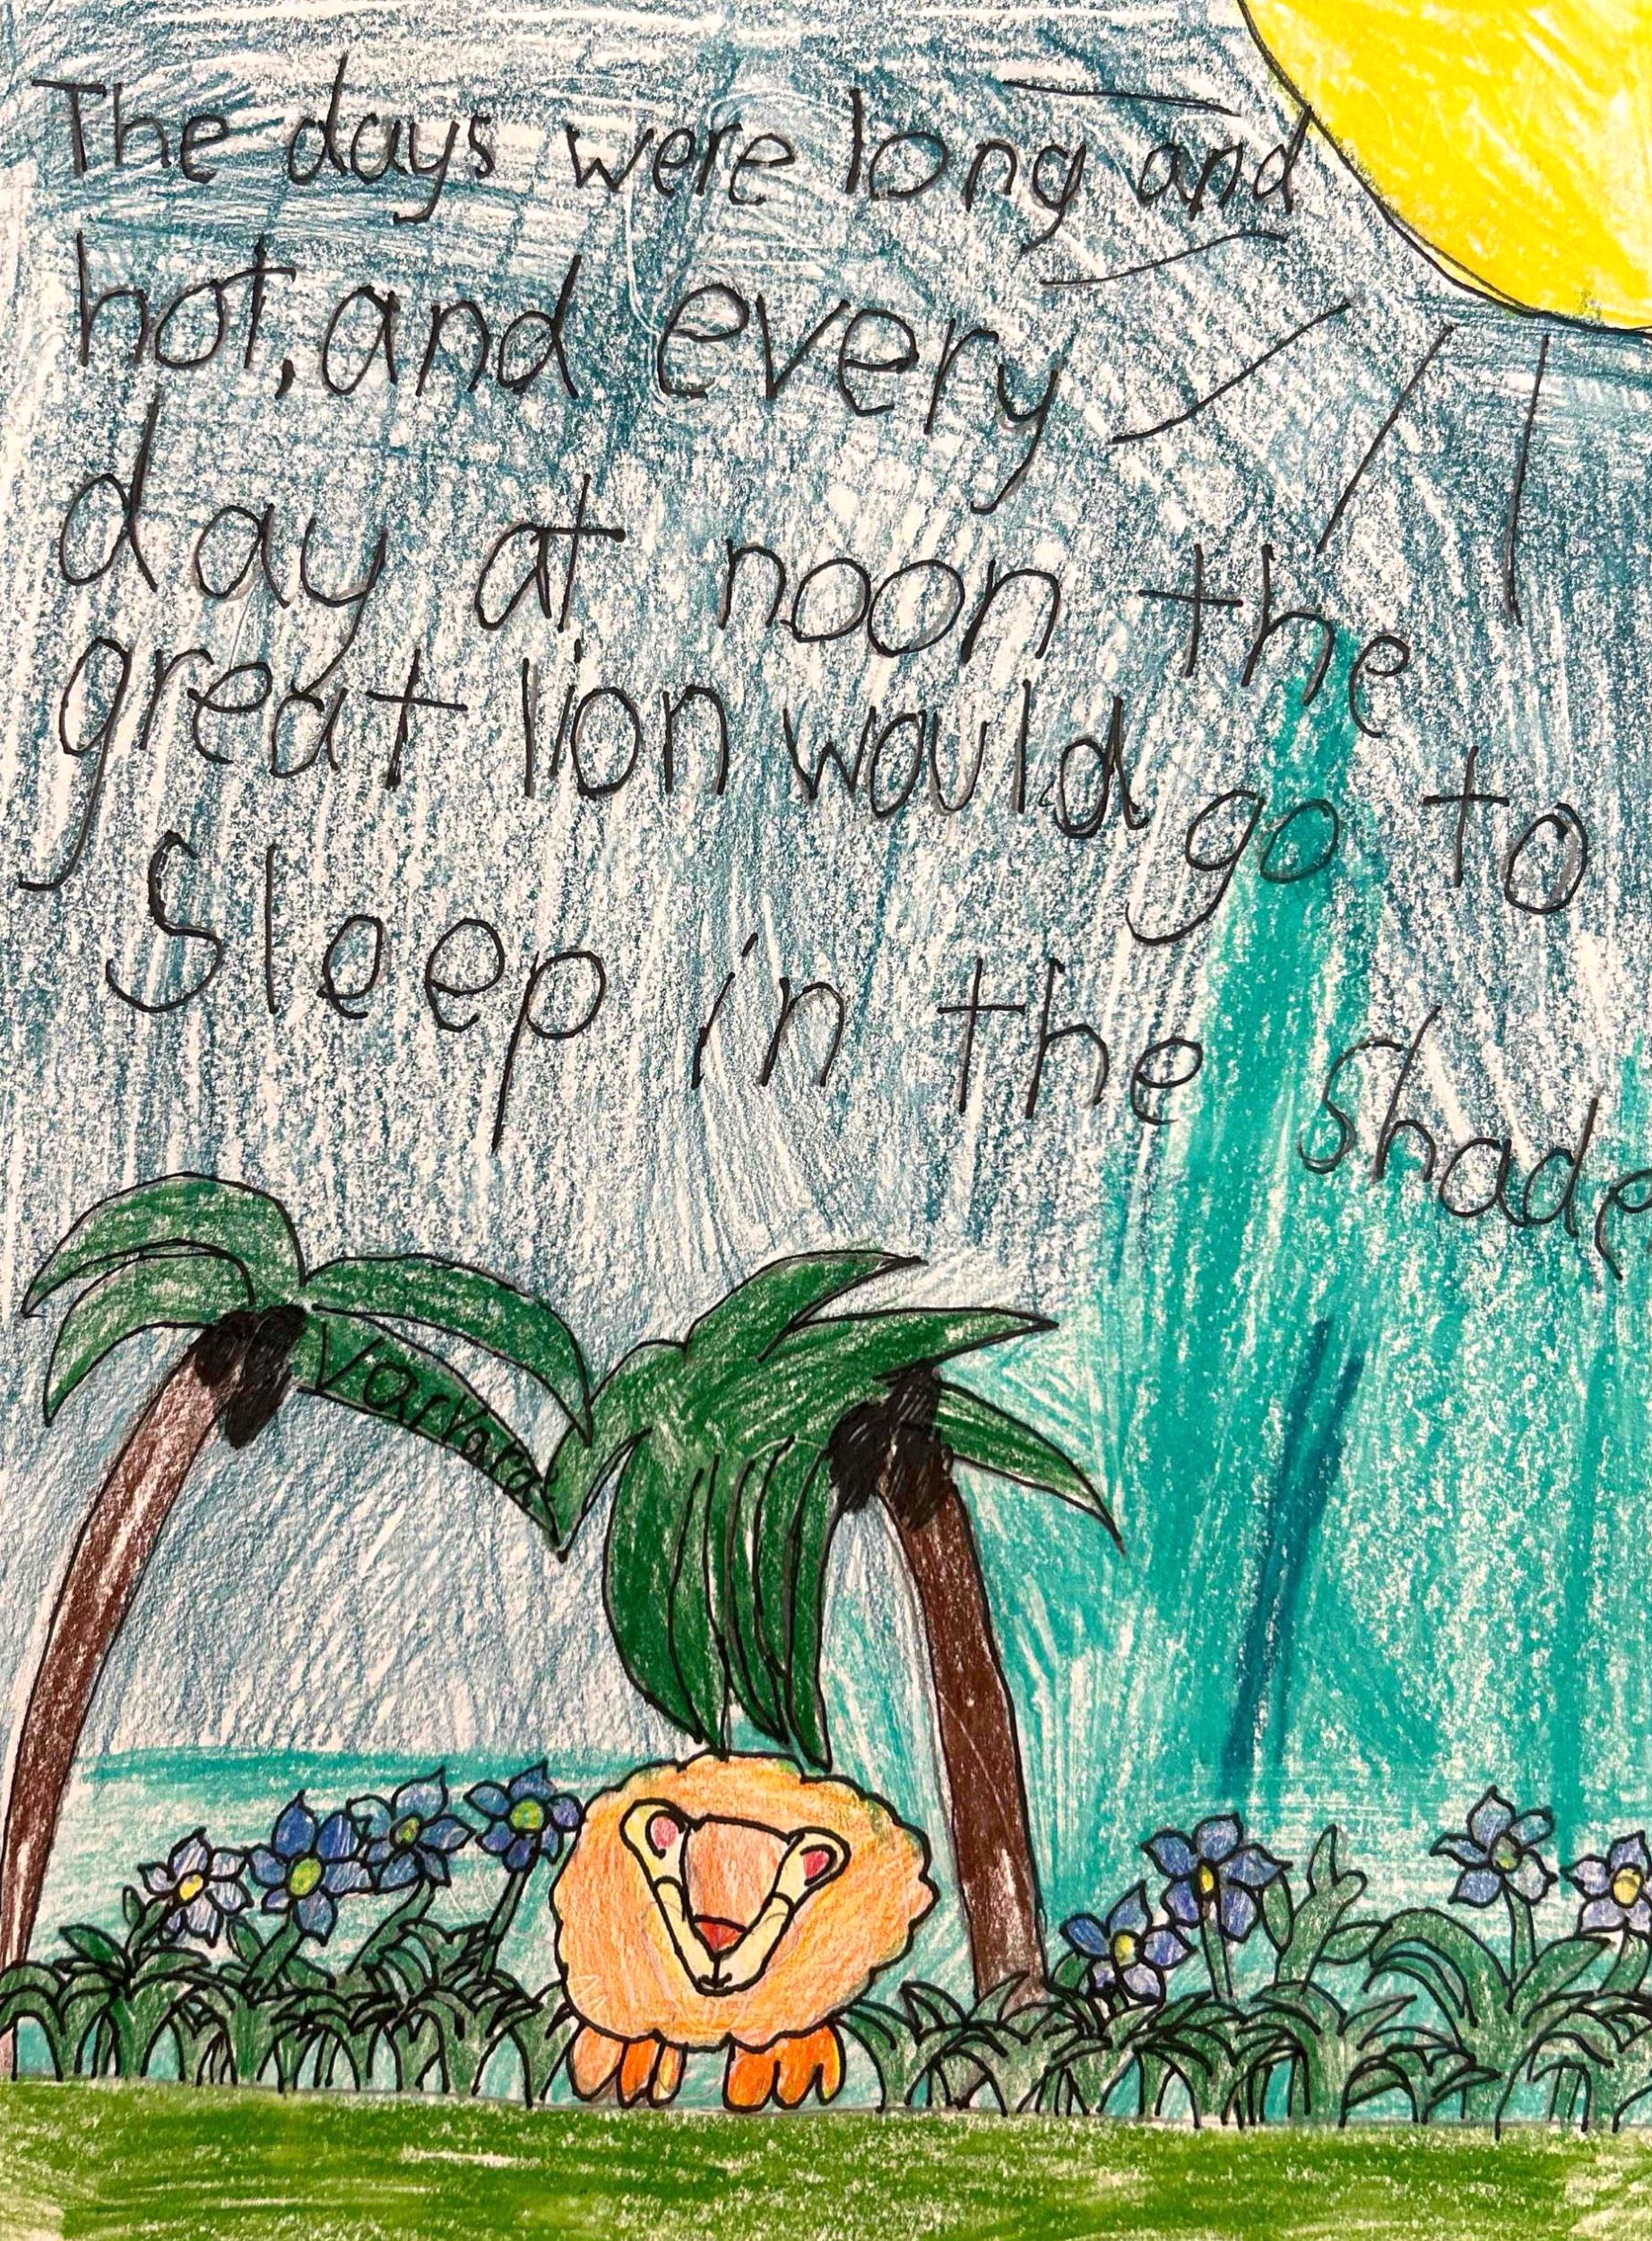 The days were long and
hot, and every
day at noon the
great lion would go to
Sleep in the shade
Varvara